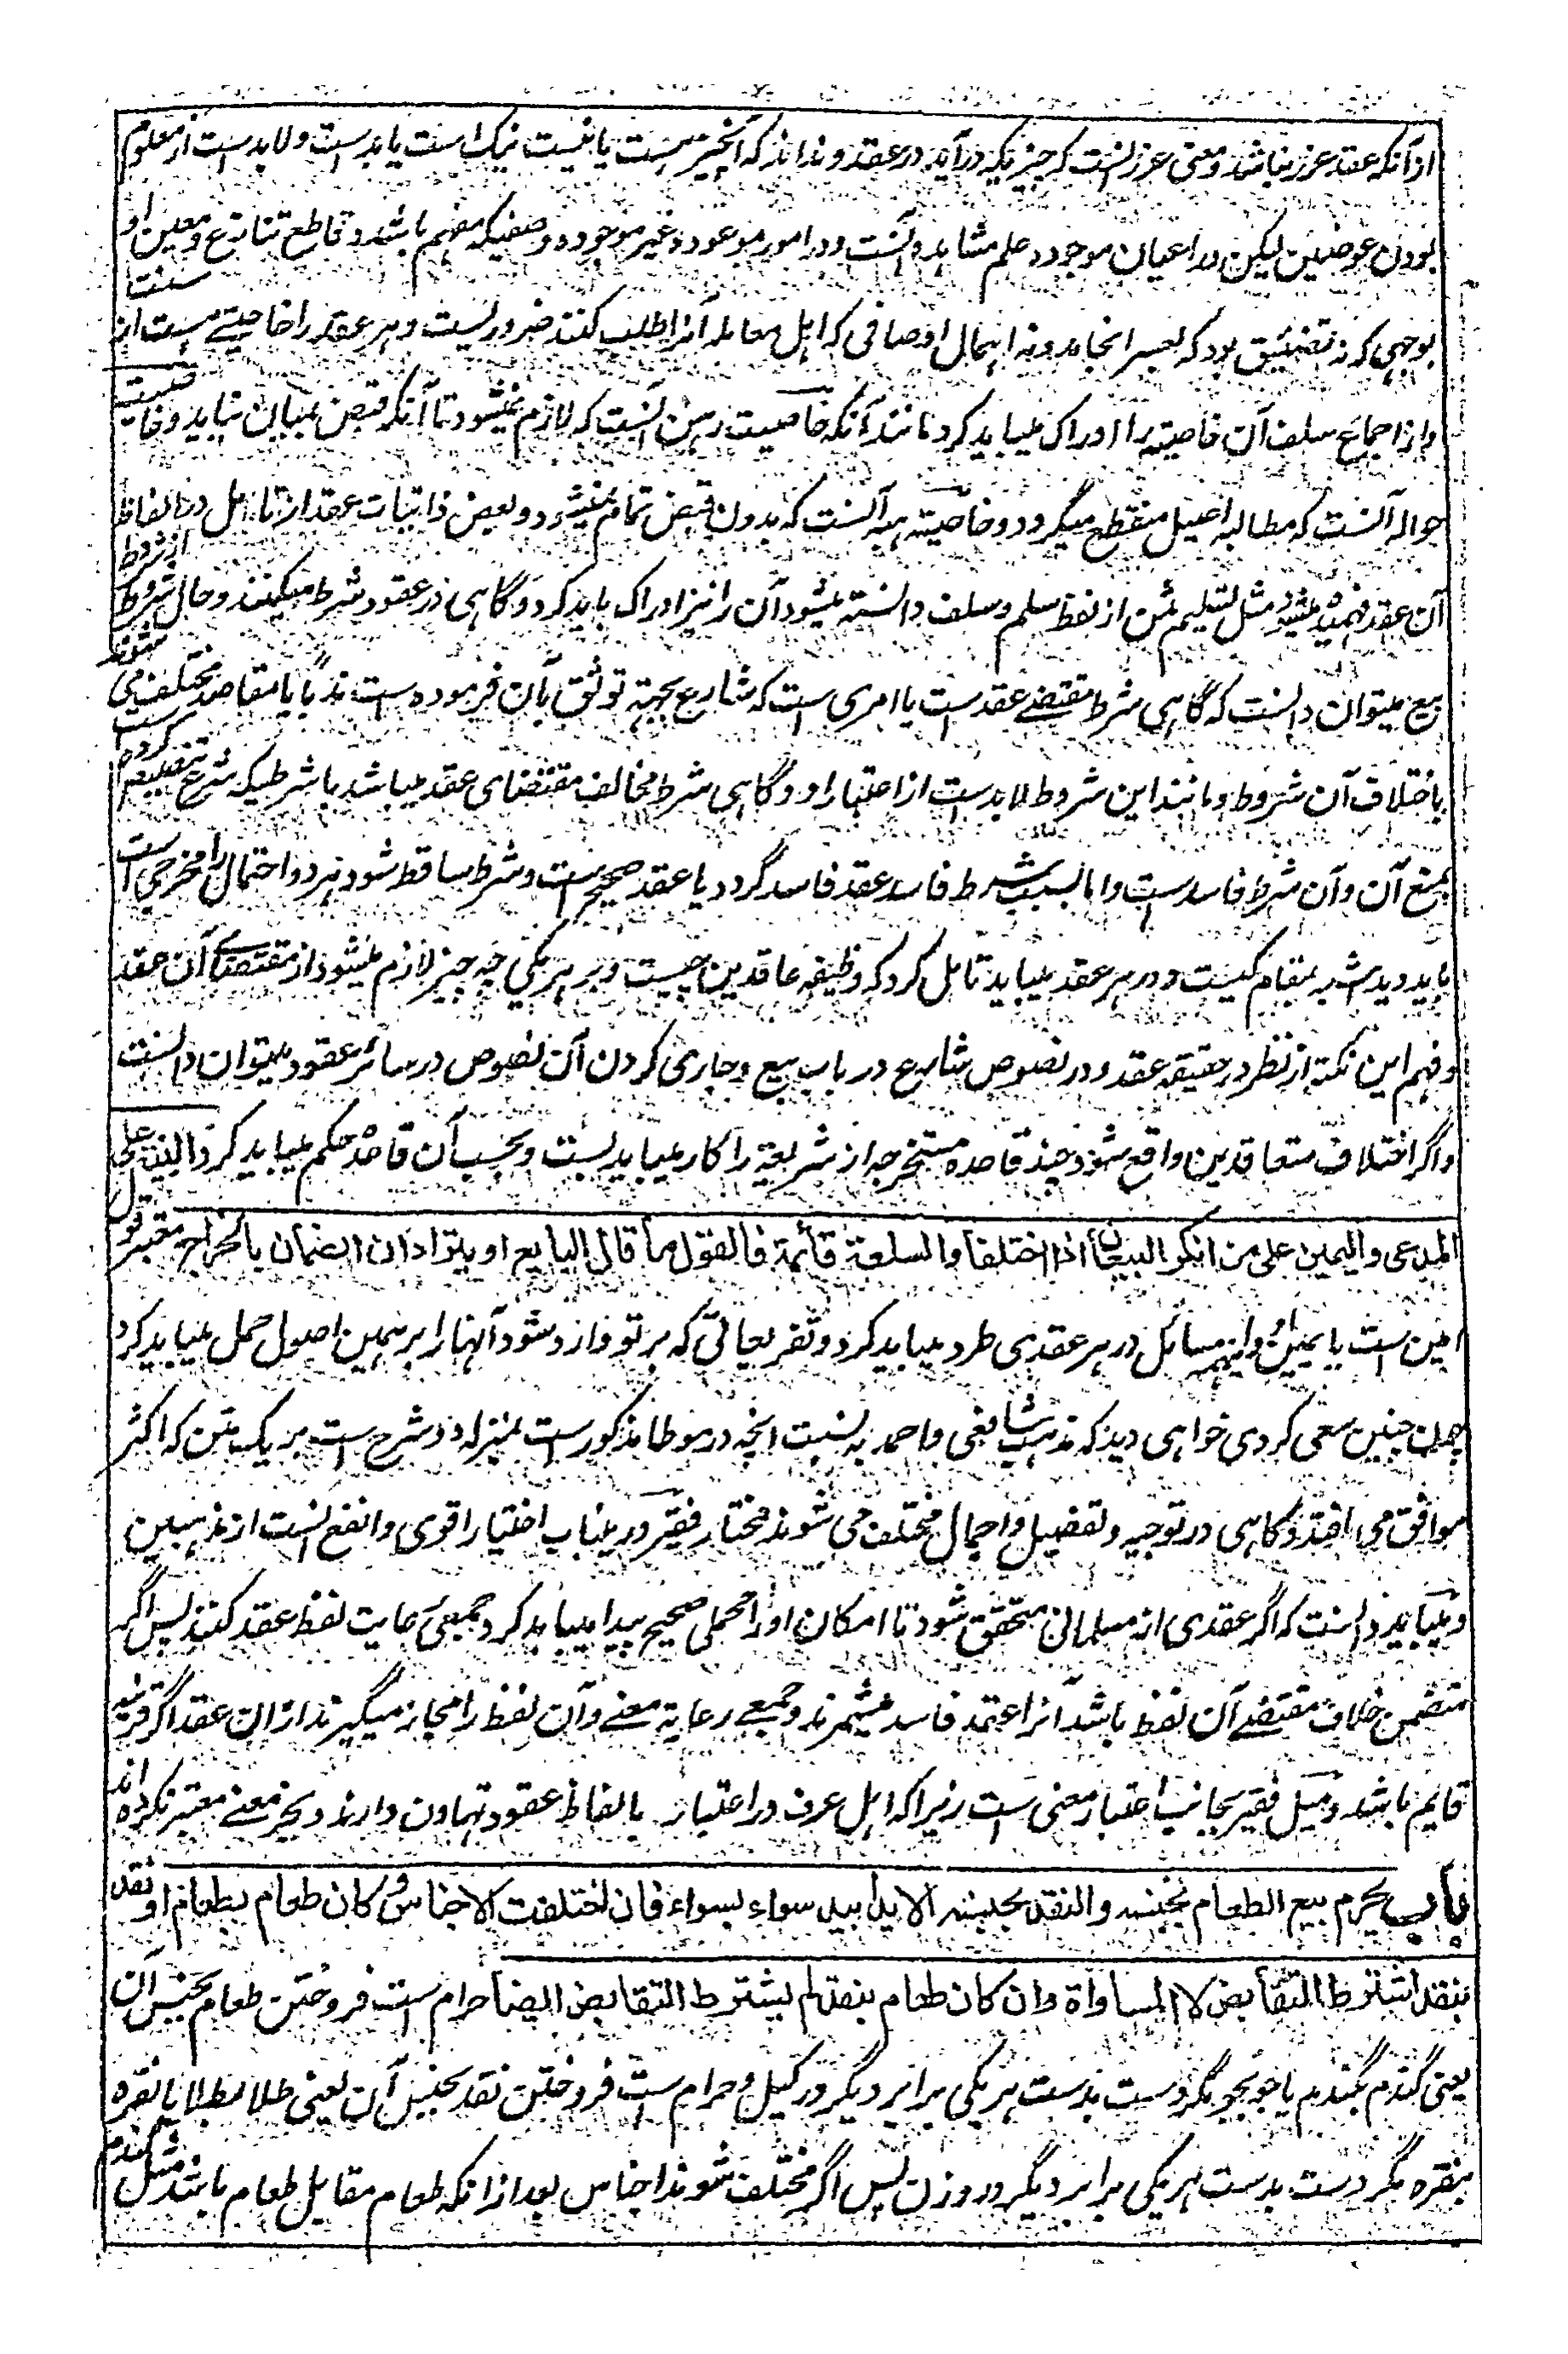 ازآنکه عقد غرر نباشد ومعنی غرر آنست که چیزیکه درآید در عقد و نداند که آنچیز هست یا نیست نیک است یا بد است ولابد است از معلوم
بودن عوضین لیکن در اعیان موجود علم مشاهده آنست ودر امور موعود وغیر موجوده وصفیکه مفهم باشد وقاطع تنازع ومعین او
بوجهی که نه تضییق بود که بعسر انجامد ونه اهمال اوصافی که اهل معامله آنرا طلب کنند ضرور است وهر عقد را خاصیتی هست از سنت
واز اجماع سلف آن خاصیته را ادراک میباید کرد مانند آنکه خاصیت رهن آنست که لازم نمیشود تا آنکه قبض بمیان نیاید وخاصیت
حواله آنست که مطالبه اصیل منقطع میگردد وخاصیته هبه آنست که بدون قبض تمام نمیشود وبعض ذاتیات عقد از تامل در الفاظ
آن عقد فهمیده میشود مثل تسلیم ثمن از لفظ سلم وسلف دانسته میشود آن را نیز ادراک باید کرد وگاهی در عقود شرط میکنند وحال شروط از شروط
بیع میتوان دانست که گاهی شرط مقتضے عقد ست یا امری ست که شارع بجهة توثق بآن فرموده ست ندبا یا مقاصد مختلف می شوند
باختلاف آن شروط ومانند این شروط لابد ست از اعتبار او وگاهی شرط مخالف مقتضای عقد میباشد یا شرطیکه شرع تنصیص کرده ست
بمنع آن وآن شرط فاسد ست واما بسبب شرط فاسد عقد فاسد گردد یا عقد صحیح ست وشرط ساقط شود هر دو احتمال را مخرجی است
باید دید شبه بمقام کیست ودر هر عقد میباید تامل کرد که وظیفه عاقدین چیست وبر هر یکی چه چیز لازم میشود از مقتضای آن عقد
وفهم این نکته از نظر در حقیقه عقد ودر نصوص شارع در باب بیع وجاری کردن آن نصوص در سائر عقود میتوان دانست
واگر اختلاف متعاقدین واقع شود چند قاعده مستخرجه از شریعة را کار میباید بست وبحسب آن قاعده حکم میباید کرد البینة علی
المدعی والیمین علی من انکر البیعان اذا اختلفا والسلعة قائمة فالقول ما قال البایع او یترادان الضمان بالخراج معتبر قول
امین ست با یمین او واینهمه مسائل در هر عقدی طرد میباید کرد وتفریعاتی که بر تو وارد شود آنها را بر همین اصول حمل میباید کرد
چون چنین سعی کردی خواهی دید که مذهب شافعی واحمد به نسبت آنچه در موطا مذکور است بمنزله دو شرح است بر یک متن که اکثر
موافق می افتد وگاهی در توجیه وتفصیل واجمال مختلف می شوند مختار فقیر درینباب اختیار اقوی وانفع است از مذهبین
ومیباید دانست که اگر عقدی از مسلمانی متحقق شود تا امکان او را محملی صحیح پیدا میباید کرد وجمعی رعایت لفظ عقد کنند پس اگر
متضمن خلاف مقتضے آن لفظ باشد آنرا عقد فاسد میشمرند وجمعے رعایة معنے وآن لفظ را مجاز میگیرند ازان عقد اگر قرینه
قایم باشد ومیل فقیر بجانب اعتبار معنی ست زیراکه اهل عرف در اعتبار بالفاظ عقود تهاون دارند وبجز معنے معتبر نکرده اند
باب یحرم بیع الطعام بجنسه والنقد بجنسه الا یدا بید سواء بسواء فان اختلفت الاجناس وکان طعام بطعام او نقد
بنقد اشترط التقابض لا المساواة وان کان طعام بنقد لم یشترط التقابض ایضا حرام است فروختن طعام بجنس آن
یعنی گندم بگندم یا جو بجو مگر دست بدست هر یکی برابر دیگر در کیل وحرام ست فروختن نقد بجنس آن یعنی طلا بطلا یا نقره
بنقره مگر دست بدست هر یکی برابر دیگر در وزن پس اگر مختلف شوند اجناس بعد ازانکه طعام مقابل طعام باشد مثل گندم